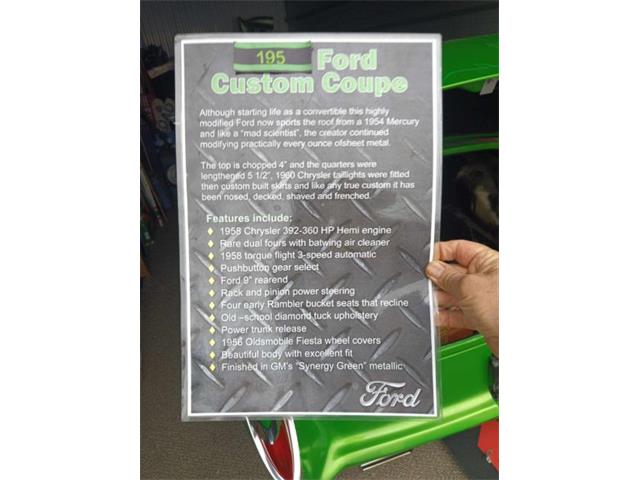 195 Ford
Custom Coupe
Although starting life as a convertible this highly
modified Ford now sports the roof from a 1954 Mercury
and like a "mad scientist", the creator continued
modifying practically every ounce ofsheet metal.
The top is chopped 4" and the quarters were
lengthened 5 1/2", 1960 Chrysler taillights were fitted
then custom built skirts and like any true custom it has
been nosed, decked, shaved and frenched.
Features include:
1958 Chrysler 392-360 HP Hemi engine
Rare dual fours with batwing air cleaner
1958 torque flight 3-speed automatic
Pushbutton gear select
Ford 9" rearend
Rack and pinion power steering
Four early Rambler bucket seats that recline
Old –school diamond tuck upholstery
Power trunk release
1956 Oldsmobile Fiesta wheel covers
Beautiful body with excellent fit
Finished in GM's "Synergy Green" metallic
Ford